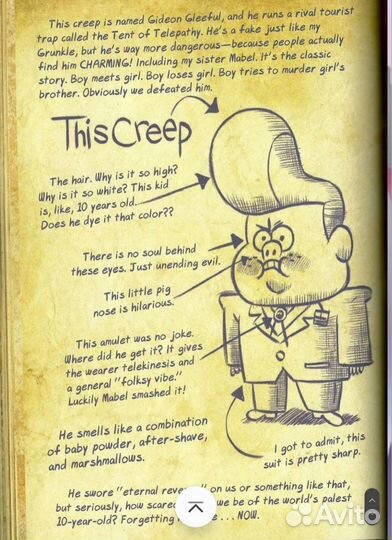 This creep is named Gideon Gleeful, and he runs a rival tourist
trap called the Tent of Telepathy. He's a fake just like my
Grunkle, but he's way more dangerous—because people actually
find him CHARMING! Including my sister Mabel. It's the classic
story. Boy meets girl. Boy loses girl. Boy tries to murder girl's
brother. Obviously we defeated him.
This Creep
The hair. Why is it so high?
Why is it so white? This kid
is, like, 10 years old.
Does he dye it that color??
There is no soul behind
these eyes. Just unending evil.
This little pig
nose is hilarious.
This amulet was no joke.
Where did he get it? It gives
the wearer telekinesis and
a general "folksy vibe."
Luckily Mabel smashed it!
He smells like a combination
of baby powder, after-shave,
and marshmallows.
I got to admit, this
suit is pretty sharp.
He swore "eternal on us or something like that,
but seriously, how we be of the world's palest
10-year-old? Forgetting ... NOW.
Avito